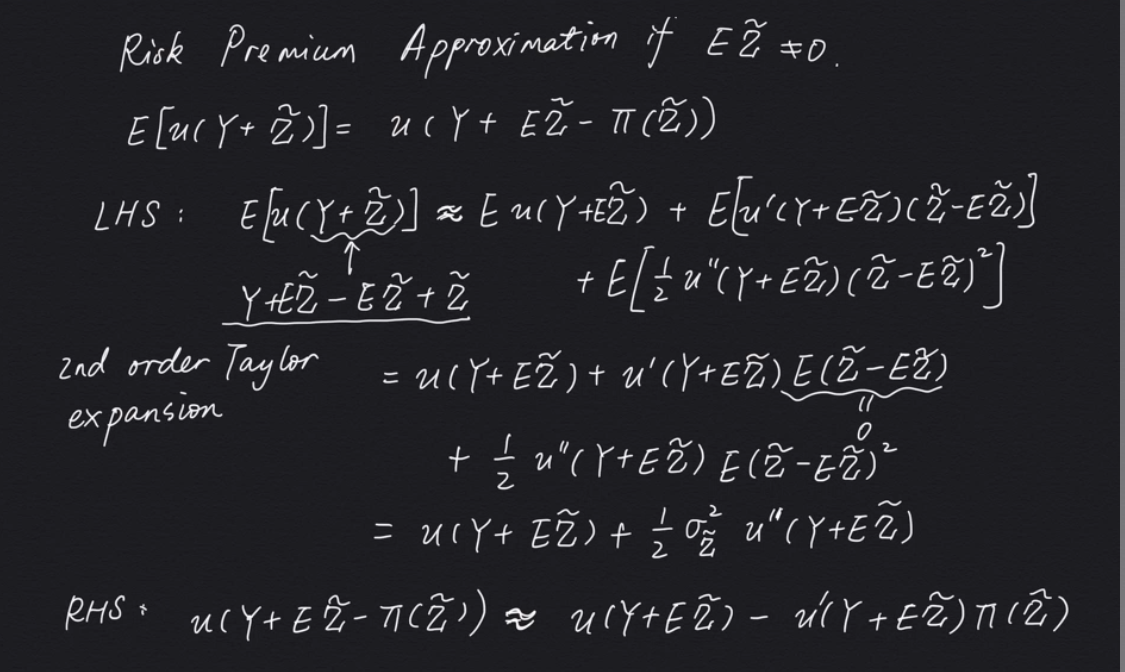 Risk Premium Approximation if EZ̃ ≠ 0.
E[u(Y+Z̃)] = u(Y + EZ̃ - π(Z̃))
LHS: E[u(Y+Z̃)] ≈ E u(Y+EZ̃) + E[u'(Y+EZ̃)(Z̃-EZ̃)]
↑
Y+EZ̃ - EZ̃ + Z̃ + E[½ u"(Y+EZ̃)(Z̃-EZ̃)²]
2nd order Taylor
expansion
= u(Y+EZ̃) + u'(Y+EZ̃) E(Z̃-EZ̃)
"
0
+ ½ u"(Y+EZ̃) E(Z̃-EZ̃)²
= u(Y+EZ̃) + ½ σ²_Z̃ u"(Y+EZ̃)
RHS: u(Y+EZ̃-π(Z̃)) ≈ u(Y+EZ̃) - u'(Y+EZ̃)π(Z̃)